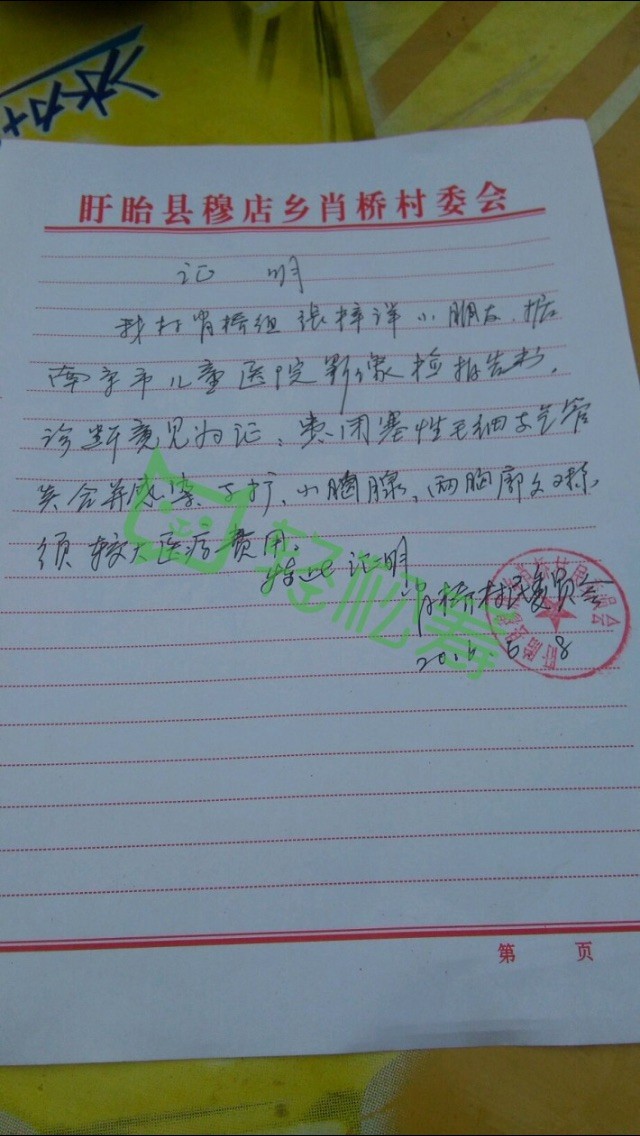 冰力+
盱眙县穆店乡肖桥村委会
证 明
我村肖桥组张梓详小朋友,据
南京市儿童医院影像检报告书,
诊断意见为证:患闭塞性毛细支气管
炎合并感染 小胸腺,两胸廓 对称,
须较大医疗费用。
特此证明
肖桥村民委员会
5.8
轻松筹
第 页